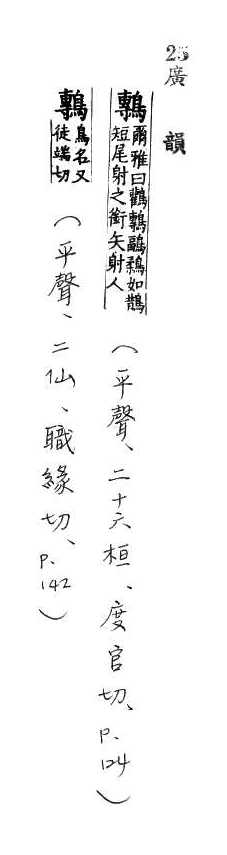 25 廣韻
鷒 爾雅曰鸛鷒鶝鶔如鵲短尾射之銜矢射人(平聲、二十六桓、度官切、P.124)
鷒 鳥名又徒端切(平聲、二仙、職緣切、P.142)